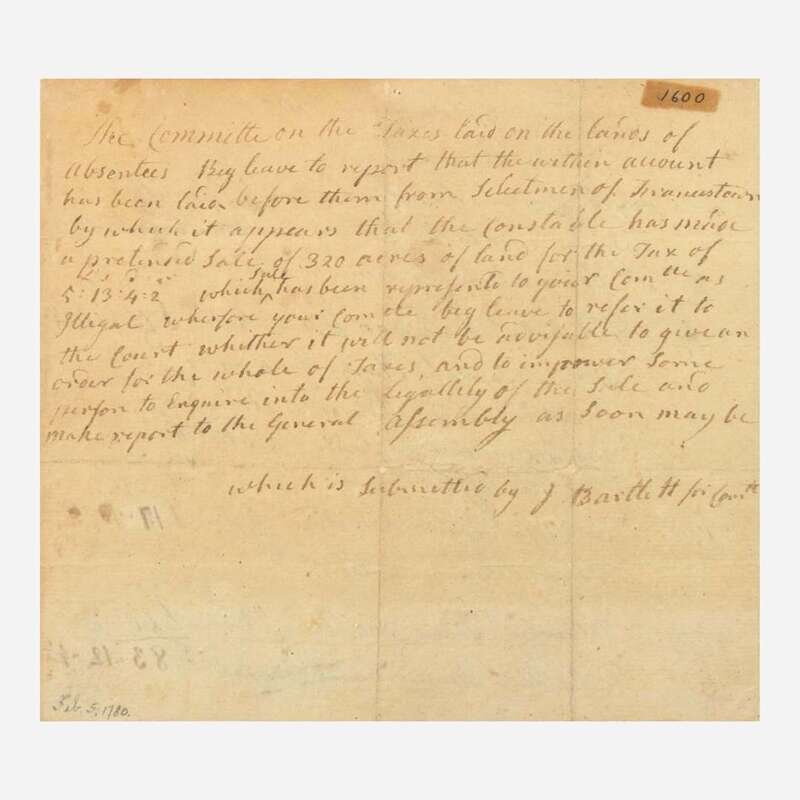 1600
The Committe on the Taxes laid on the lands of
absentees Beg leave to report that the within account
has been laid before them from Selectmen of Francestown
by which it appears that the Constable has made
a pretended Sale of 320 acres of land for the Tax of
5:13:4:2 which Sale has been represente to your Comtte as
Illegal wherfore your Comtte beg leave to refer it to
the Court whither it will not be advisable to give an
order for the whole of Taxes, and to impower Some
person to Enquire into the legallity of the Sale and
make report to the General Assembly as Soon may be
which is Submitted by J Bartlett for Comtt
Feb. 5, 1780.